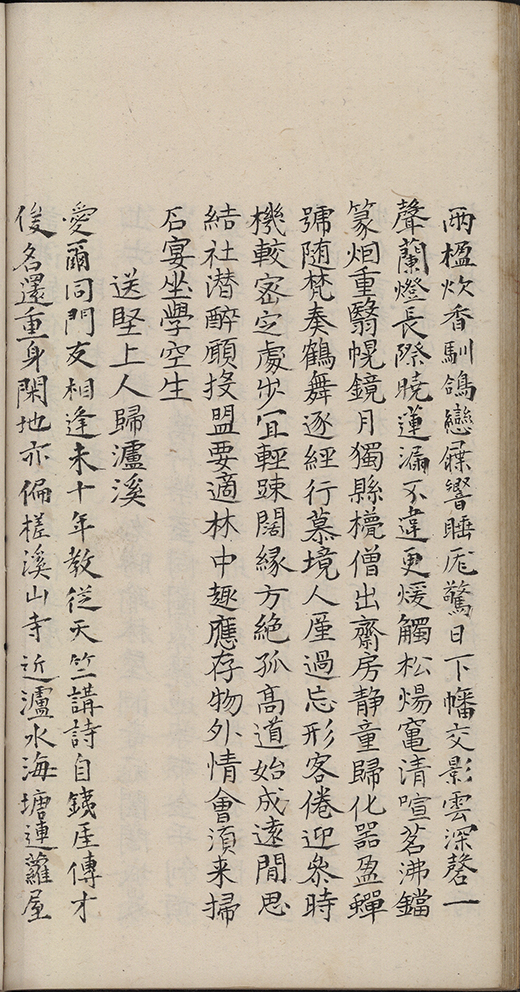 兩楹炊香馴鴿戀屧響睡尨驚日下幡交影雲深磬一
聲蘭燈長際曉蓮漏不違更煖觸松煬竈清喧茗沸鐺
篆烟重翳幌鏡月獨縣櫎僧出齋房静童歸化器盈蟬
號随梵奏鶴舞逐經行慕境人廑過忘形客倦迎叅時
機較密定處步冝輕踈闊緣方絕孤高道始成遠閒思
結社潜醉願投盟要適林中趣應存物外情會湏来掃
石宴坐學空生
送堅上人歸瀘溪
愛爾同門友相逢未十年教從天竺講詩自鉄厓傳才
俊名還重身閑地亦偏槎溪山寺近瀘水海塘連蘿屋